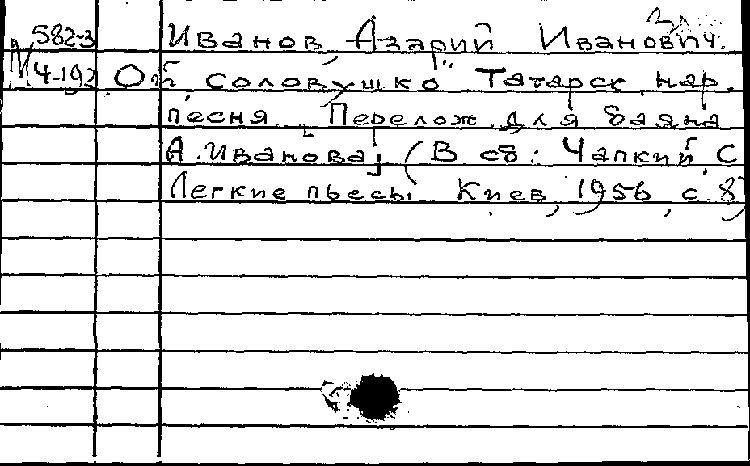 582-3 Иванов, Азарий Иванович.
М 4-192 Ой, соловушко" Татарск. нар.
песня. Перелож. для баяна
А. Иванова] (В сб: Чапкий, С
Легкие пьесы. Киев, 1956, с. 8)